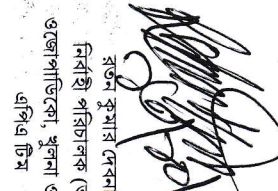 রতন কুমার দেবনা
নির্বাহী পরিচালক (
ওজোপাডিকো, খুলনা ও
এপিএ টিম